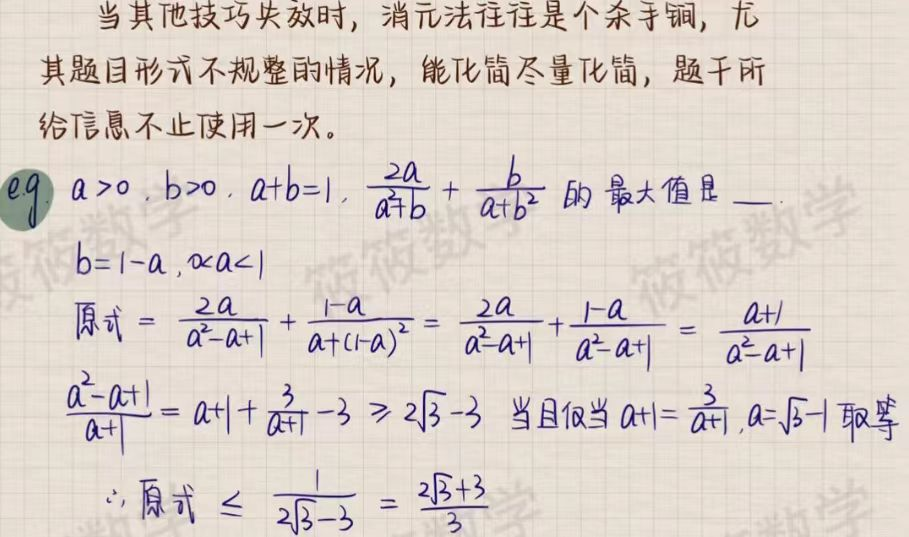 当其他技巧失效时，消元法往往是个杀手锏，尤
其题目形式不规整的情况，能化简尽量化简，题干所
给信息不止使用一次。
e.g. a>0，b>0，a+b=1，\frac{2a}{a^2+b} + \frac{b}{a+b^2} 的最大值是 __.
b=1-a，0<a<1
原式 = \frac{2a}{a^2-a+1} + \frac{1-a}{a+(1-a)^2} = \frac{2a}{a^2-a+1} + \frac{1-a}{a^2-a+1} = \frac{a+1}{a^2-a+1}
\frac{a^2-a+1}{a+1} = a+1+\frac{3}{a+1}-3 ≥ 2√3-3 当且仅当 a+1=\frac{3}{a+1}，a=√3-1 取等
∴ 原式 ≤ \frac{1}{2√3-3} = \frac{2√3+3}{3}
筱筱数学
筱筱数学
筱筱数学